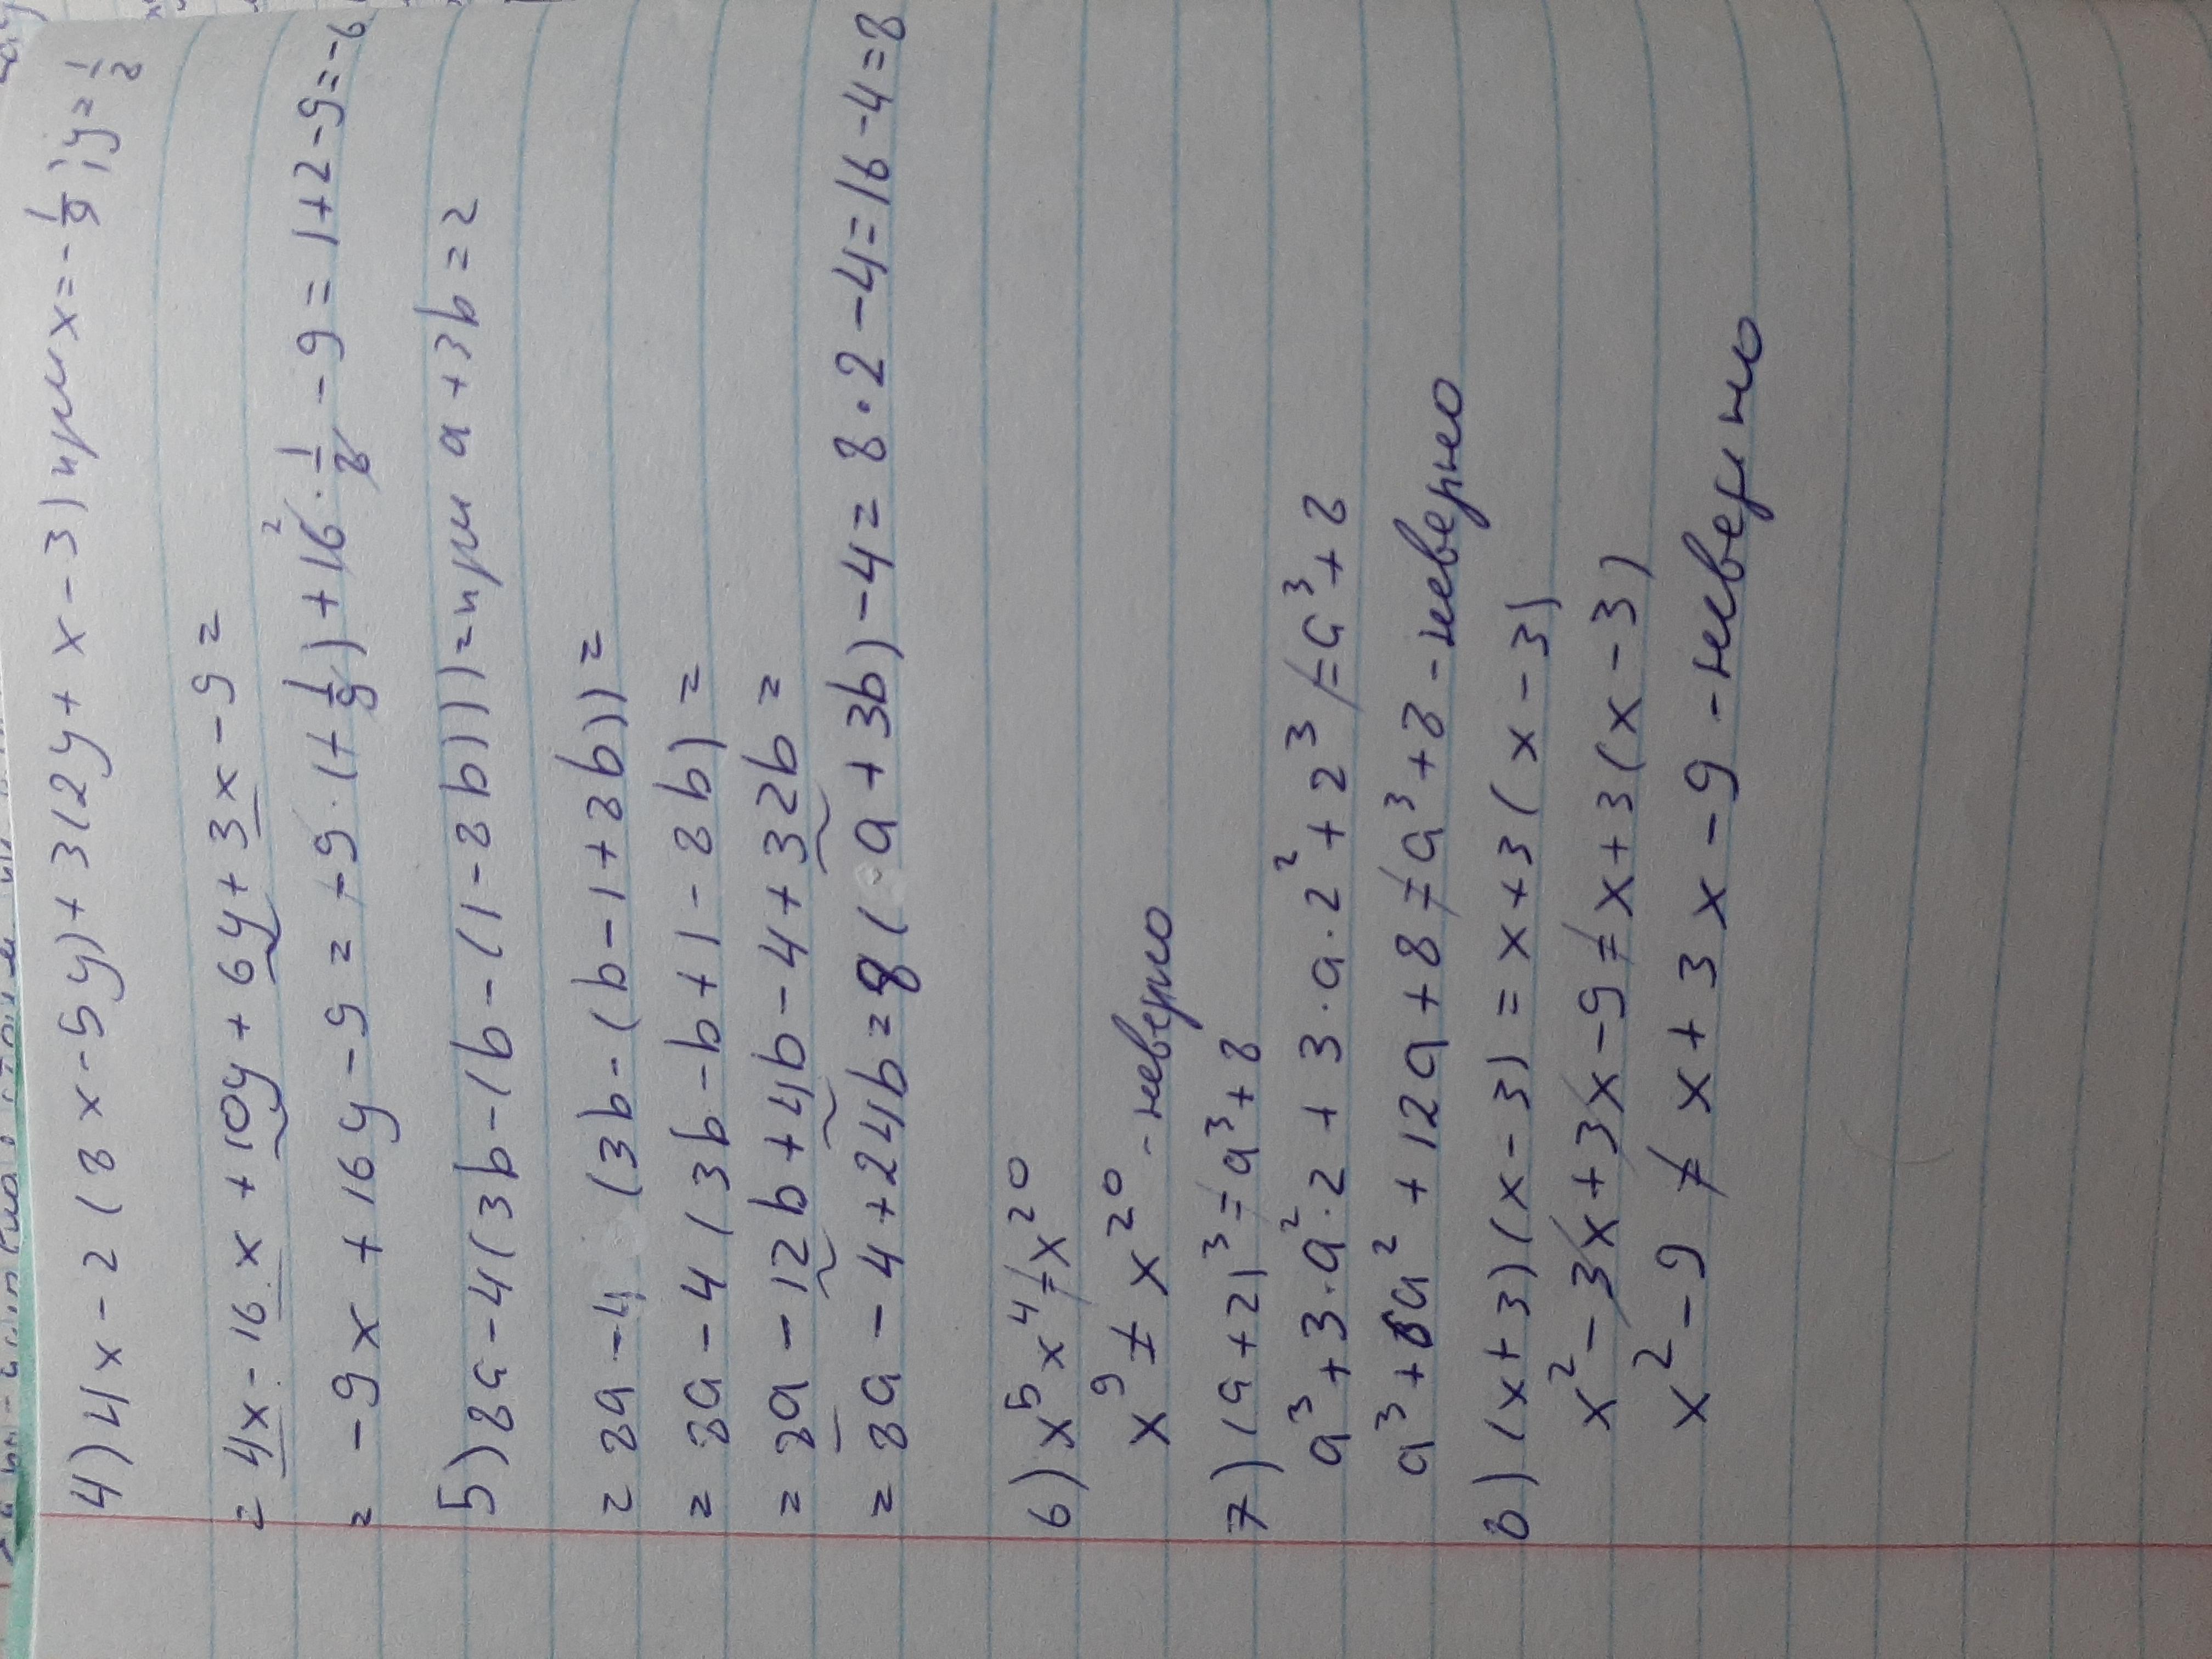 4) 4x - 2(8x - 5y) + 3(2y + x - 3) при x = -1/9; y = 1/8
= 4x - 16x + 10y + 6y + 3x - 9 =
= -9x + 16y - 9 = +9·(+1/9) + 16²·1/8 - 9 = 1 + 2 - 9 = -6
5) 8a - 4(3b - (b - (1 - 8b))) = при a + 3b = 2
= 8a - 4 (3b - (b - 1 + 8b)) =
= 8a - 4(3b - b + 1 - 8b) =
= 8a - 12b + 4b - 4 + 32b =
= 8a - 4 + 24b = 8(a + 3b) - 4 = 8·2 - 4 = 16 - 4 = 8
6) x⁵x⁴ ≠ x²⁰
x⁹ ≠ x²⁰ - неверно
7) (a + 2)³ = a³ + 8
a³ + 3·a²·2 + 3·a·2² + 2³ ≠ a³ + 8
a³ + 6a² + 12a + 8 ≠ a³ + 8 - неверно
8) (x + 3)(x - 3) = x + 3(x - 3)
x² - 3x + 3x - 9 ≠ x + 3(x - 3)
x² - 9 ≠ x + 3x - 9 - неверно